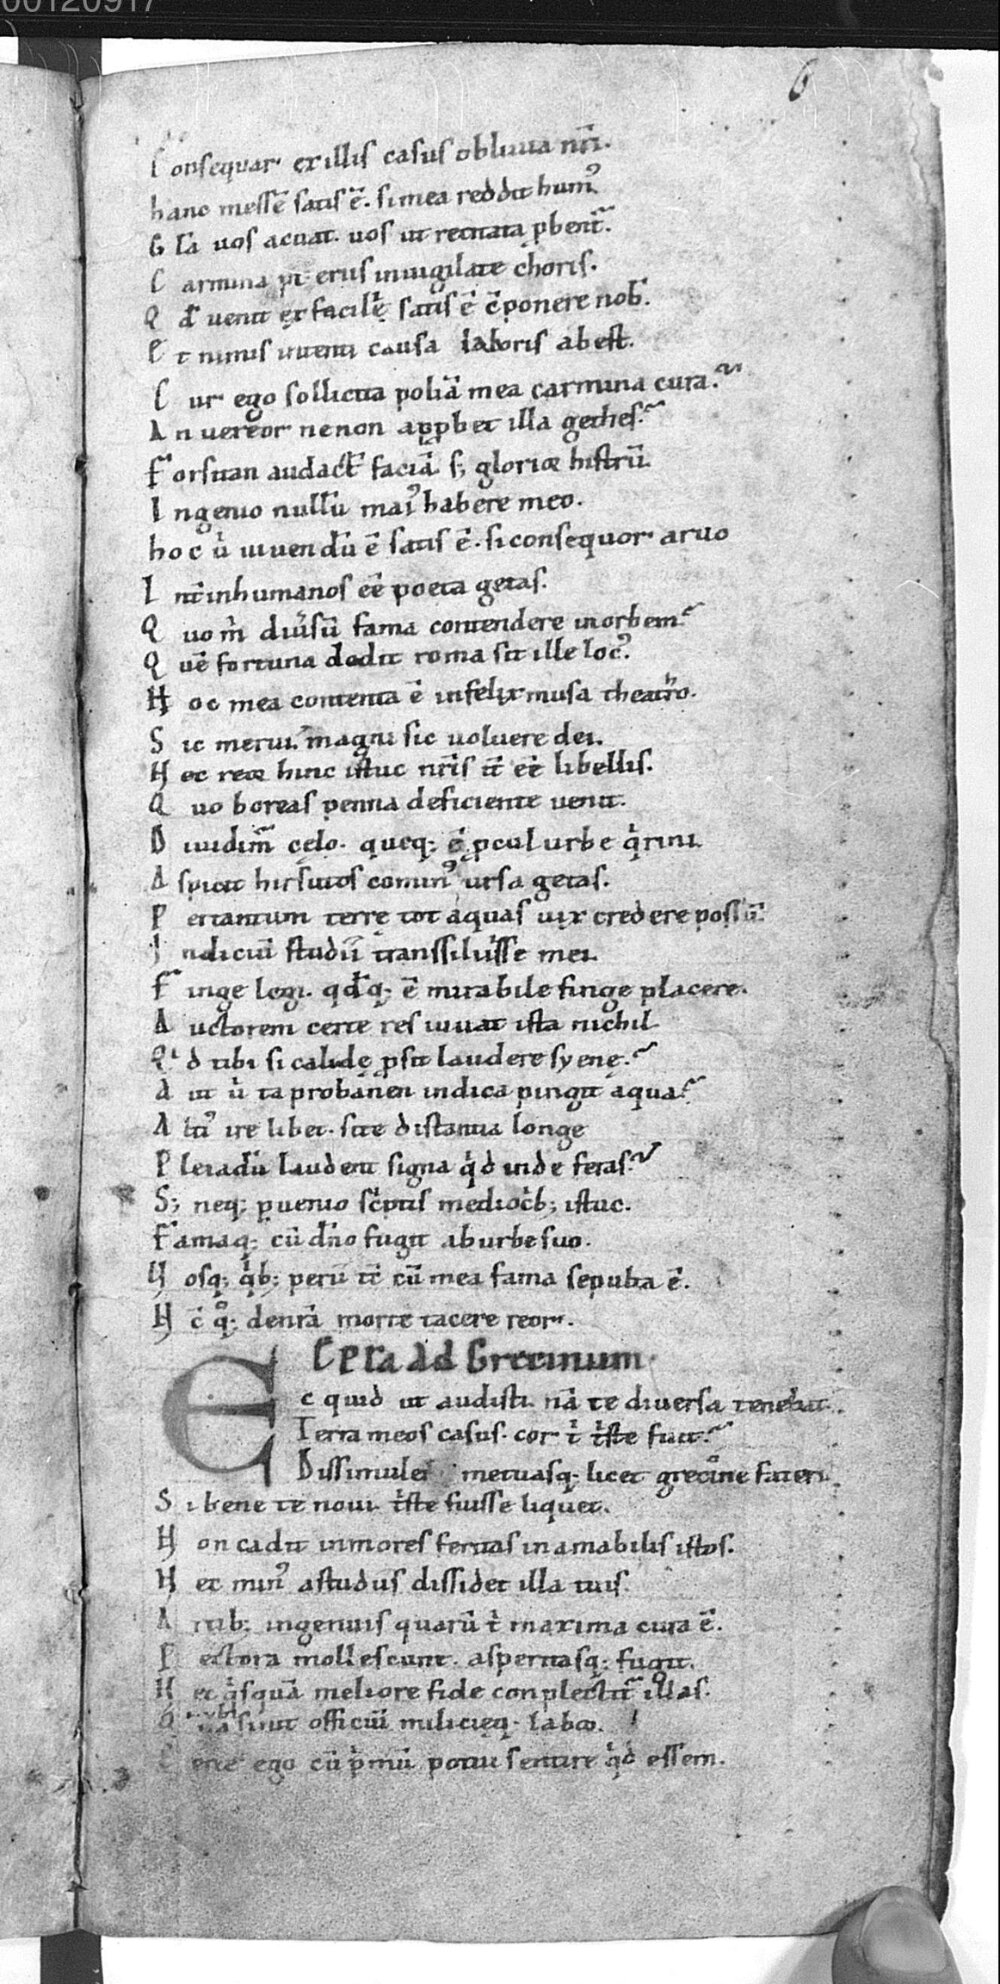 00120917
6
Consequar ex illis casus obliuia nr̄i.
hanc messē satis ē. si mea reddit hum᷒
Glīa uos acuat. uos ut recitata p̱bent᷑.
Carmina pi eriis inuigilate choris.
Qd̄ uenit ex facilē satis ē c̄ponere nob̄.
Et nimis iuueni causa laboris abest.
Cur ego sollicita poliā mea carmina cura.
An uereor ne non app̱bet illa gethes.
Forsitan audact̄ faciā s; glorior histrū
Ingenio nullū mai᷒ habere meo.
hoc ù uiuendū ē satis ē. si consequor aruo
Int̄ inhumanos eē poeta getas.
Quo m̄ diuisū fama contendere in orbem
Quē fortuna dedit roma sit ille loc᷒.
Hoc mea contenta ē infelix musa theatro.
Sic merui. magni sic uoluere dei.
Nec reor hinc istuc nr̄is it̄ eē libellis.
Quo boreas penna deficiente uenit.
Diuidim᷒ celo. queq; ē p̱cul urbe q̇rini
Aspicit hirsutos comin᷒ ursa getas.
Per tantum terrę tot aquas uix credere possū
Indiciū studii transsiluisse mei.
Finge legi. qd̄q; ē mirabile finge placere.
Auctorem certe res iuuat ista nichil
Qid tibi si calidę p̱sit laudere syenę.
Aut ù taprobanen indica pingit aqua
Alti᷒ ire libet. si te distantia longe
Pleiadū laudent signa q̇d inde feras.
S; neq; peruenio sc̄ptis mediocb; istuc.
Famaq; cū dn̄o fugit ab urbe suo.
Uosq; q̇b; perii tc̄ cū mea fama sepulta ē.
Nc̄ qº; de nrā morte tacere reor.
Epl̄a ad Grecinum
Ecquid ut audisti. nā te diuersa tenebat.
Terra meos casus. cor t̄ t̄ste fuit.
Dissimules metuasq; licet grecine fateri
Si bene te noui. t̄ste fuisse liquet.
Non cadit in mores feritas inamabilis istos.
Nec min᷒ a studiis dissidet illa tuis.
Artib; ingenuis quarū t̄ maxima cura ē.
Pectora mollescunt. asperitasq; fugit.
Nec q̇squā meliore fide conplectit᷑ illas.
sinit officiū milicięq; labor.
Certe ego cū p̄mū potui sentire q̇d essem.